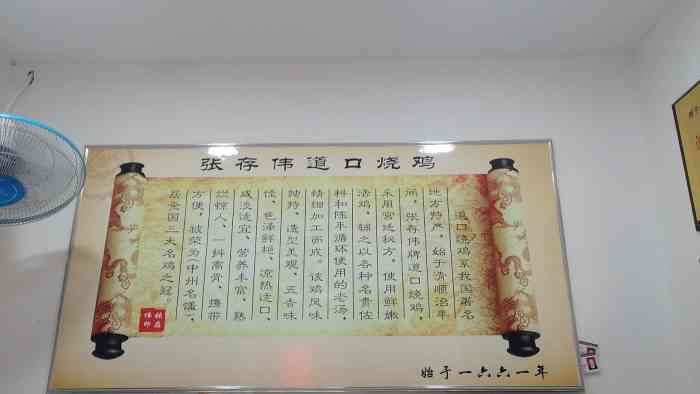 张存伟道口烧鸡
道口烧鸡系我国著名
地方特产，始于清顺治年
间，张存伟牌道口烧鸡，
采用宫廷秘方，使用鲜嫩
活鸡、辅之以各种名贵佐
料和陈年循环使用的老汤，
精细加工而成。该鸡风味
独特、造型美观、五香味
佳、色泽鲜艳、凉热适口、
咸淡适宜、营养丰富、熟
烂惊人、一抖离骨、携带
方便，被荣为《中州名馐》，
居全国三大名鸡之冠。
始于一六六一年